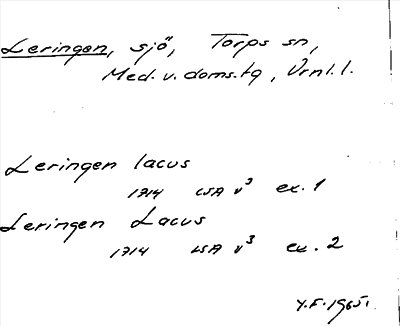 Leringen, sjö, Torps sn,
Med. v. doms.tg, Vrnl. l.
Leringen lacus
1714 LSA V³ ex. 1
Leringen Lacus
1714 LSA V³ ex. 2
Y.F. 1965.